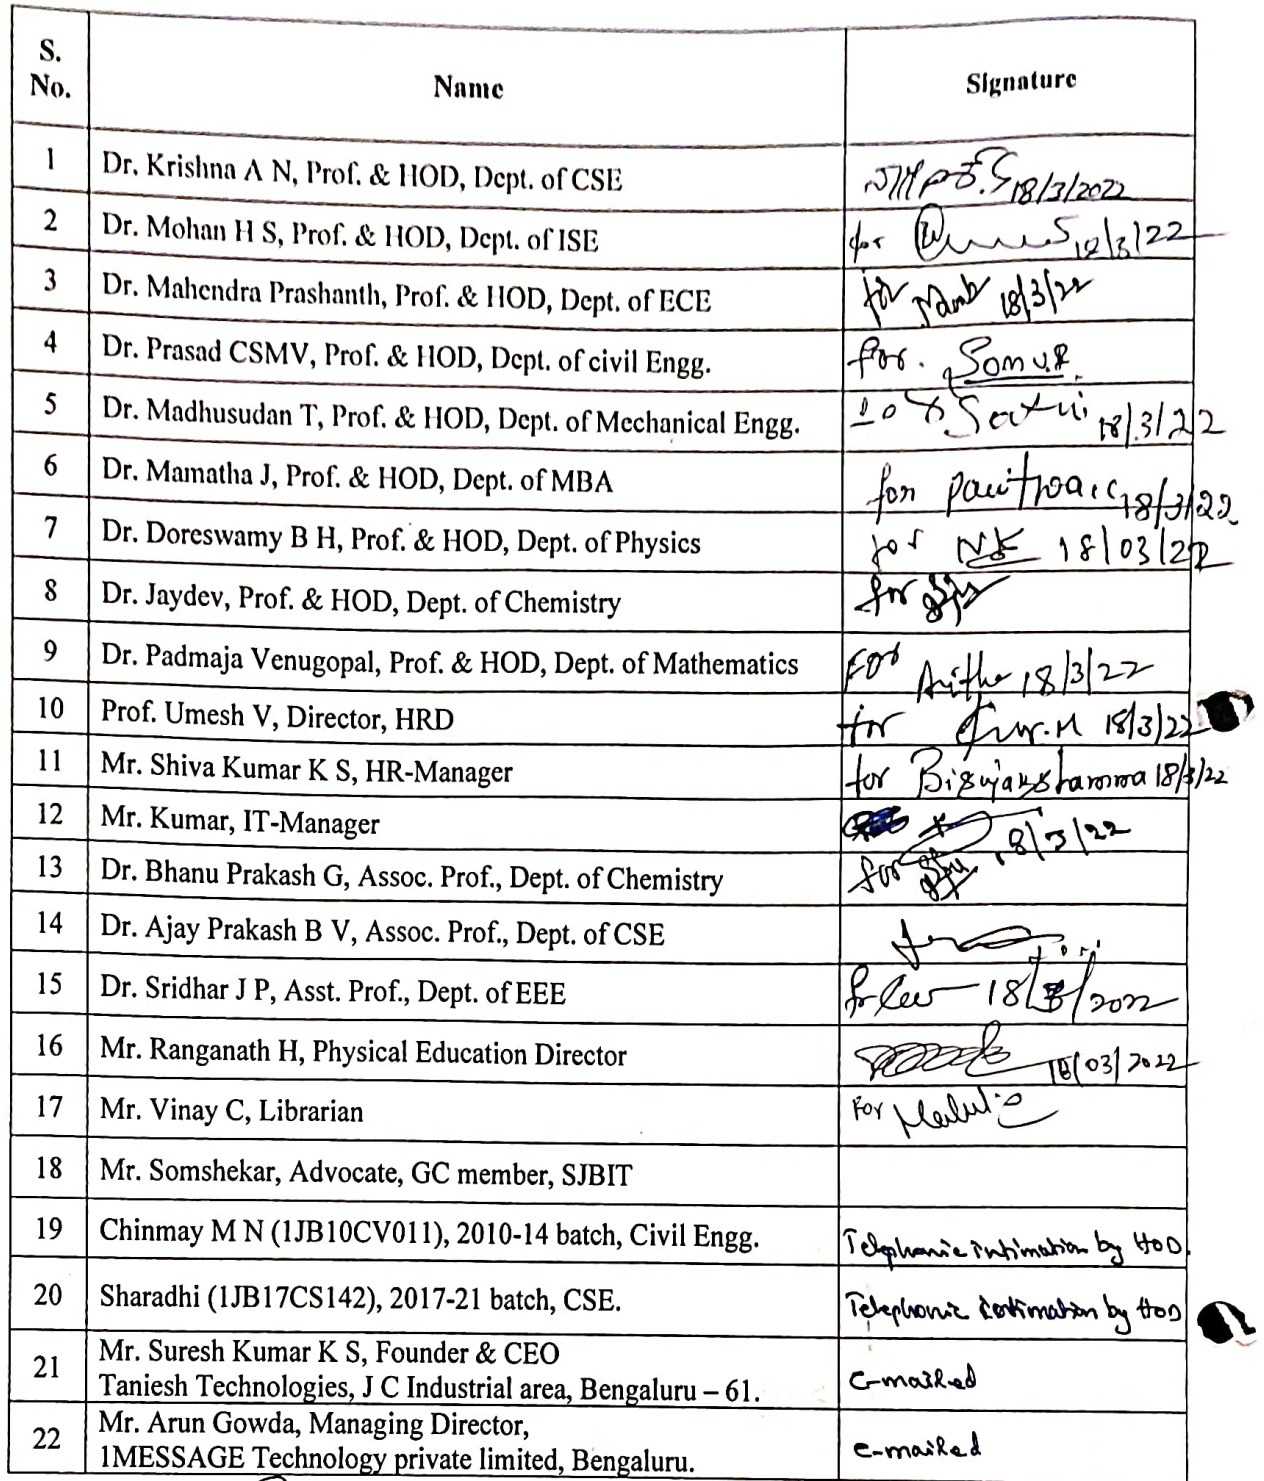 S. No. Name Signature
1 Dr. Krishna A N, Prof. & HOD, Dept. of CSE 18/3/2022
2 Dr. Mohan H S, Prof. & HOD, Dept. of ISE for
3 Dr. Mahendra Prashanth, Prof. & HOD, Dept. of ECE for 18/3/22
4 Dr. Prasad CSMV, Prof. & HOD, Dept. of civil Engg. for.
5 Dr. Madhusudan T, Prof. & HOD, Dept. of Mechanical Engg. 18/3/22
6 Dr. Mamatha J, Prof. & HOD, Dept. of MBA for 18/3/22
7 Dr. Doreswamy B H, Prof. & HOD, Dept. of Physics for 18/03/22
8 Dr. Jaydev, Prof. & HOD, Dept. of Chemistry for
9 Dr. Padmaja Venugopal, Prof. & HOD, Dept. of Mathematics For 18/3/22
10 Prof. Umesh V, Director, HRD for 18/3/22
11 Mr. Shiva Kumar K S, HR-Manager for 18/3/22
12 Mr. Kumar, IT-Manager 18/3/22
13 Dr. Bhanu Prakash G, Assoc. Prof., Dept. of Chemistry for
14 Dr. Ajay Prakash B V, Assoc. Prof., Dept. of CSE
15 Dr. Sridhar J P, Asst. Prof., Dept. of EEE 18/3/2022
16 Mr. Ranganath H, Physical Education Director 18/03/2022
17 Mr. Vinay C, Librarian For
18 Mr. Somshekar, Advocate, GC member, SJBIT
19 Chinmay M N (1JB10CV011), 2010-14 batch, Civil Engg. Telephonic intimation by HOD.
20 Sharadhi (1JB17CS142), 2017-21 batch, CSE. Telephonic intimation by HOD
21 Mr. Suresh Kumar K S, Founder & CEO
Taniesh Technologies, J C Industrial area, Bengaluru – 61. e-mailed
22 Mr. Arun Gowda, Managing Director,
1MESSAGE Technology private limited, Bengaluru. e-mailed